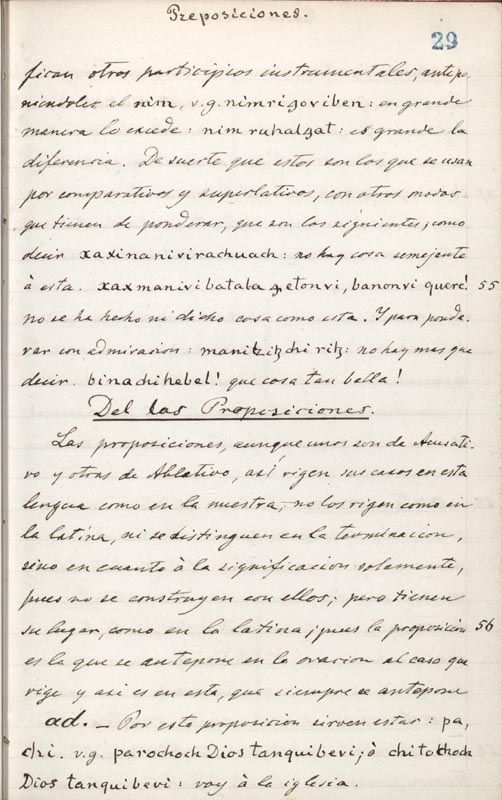 Preposiciones.
29
fican otros participios instrumentales, antepo-
niendoles el nim, v.g. nimriꜫoviben: en grande
manera lo excede: nim ruhalꜫat: es grande la
diferencia. De suerte que estos son los que se usan
por comparativos y superlativos, con otros modos
que tienen de ponderar, que son los siguientes; como
decir xaxinanivirachuach: no hay cosa semejante
à esta. xaxmanivibatala ꜭetonvi, banonvi queré! 55
no se ha hecho ni dicho cosa como esta. Y para ponde-
rar con admiracion: manitziꜩchi riꜩ: no hay mas que
decir. binachihebel! que cosa tan bella!
Del las Proposiciones.
Las proposiciones, aunque unos son de Acusati-
vo y otras de Ablativo, así rigen sus casos en esta
lengua como en la nuestra, no los rigen como en
la latina, ni se distinguen en la terminacion,
sino en cuanto à la significacion solamente,
pues no se construyen con ellos; pero tienen
su lugar, como en la latina; pues la proposicion 56
es la que se antepone en la oracion al caso que
rige y asi es en esta, que siempre se antepone
ad. — Por esta proposicion sirven estas: pa,
chi. v.g. parochoch Dios tanquibevi; ò chitochoch
Dios tanquibevi: voy à la iglesia.